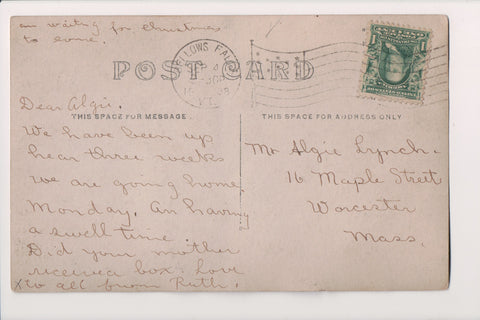 am waiting for Christmas
to come.
BELLOWS FALLS
VT.
1
POST CARD
THIS SPACE FOR MESSAGE
THIS SPACE FOR ADDRESS ONLY
Dear Algie.
We have been up
hear three weeks
we are going home
Monday. An having
a swell time.
Did your mother
receive a box. Love
x to all from Ruth.
Mr Algie Lynch.
16 Maple Street
Worcester
Mass.